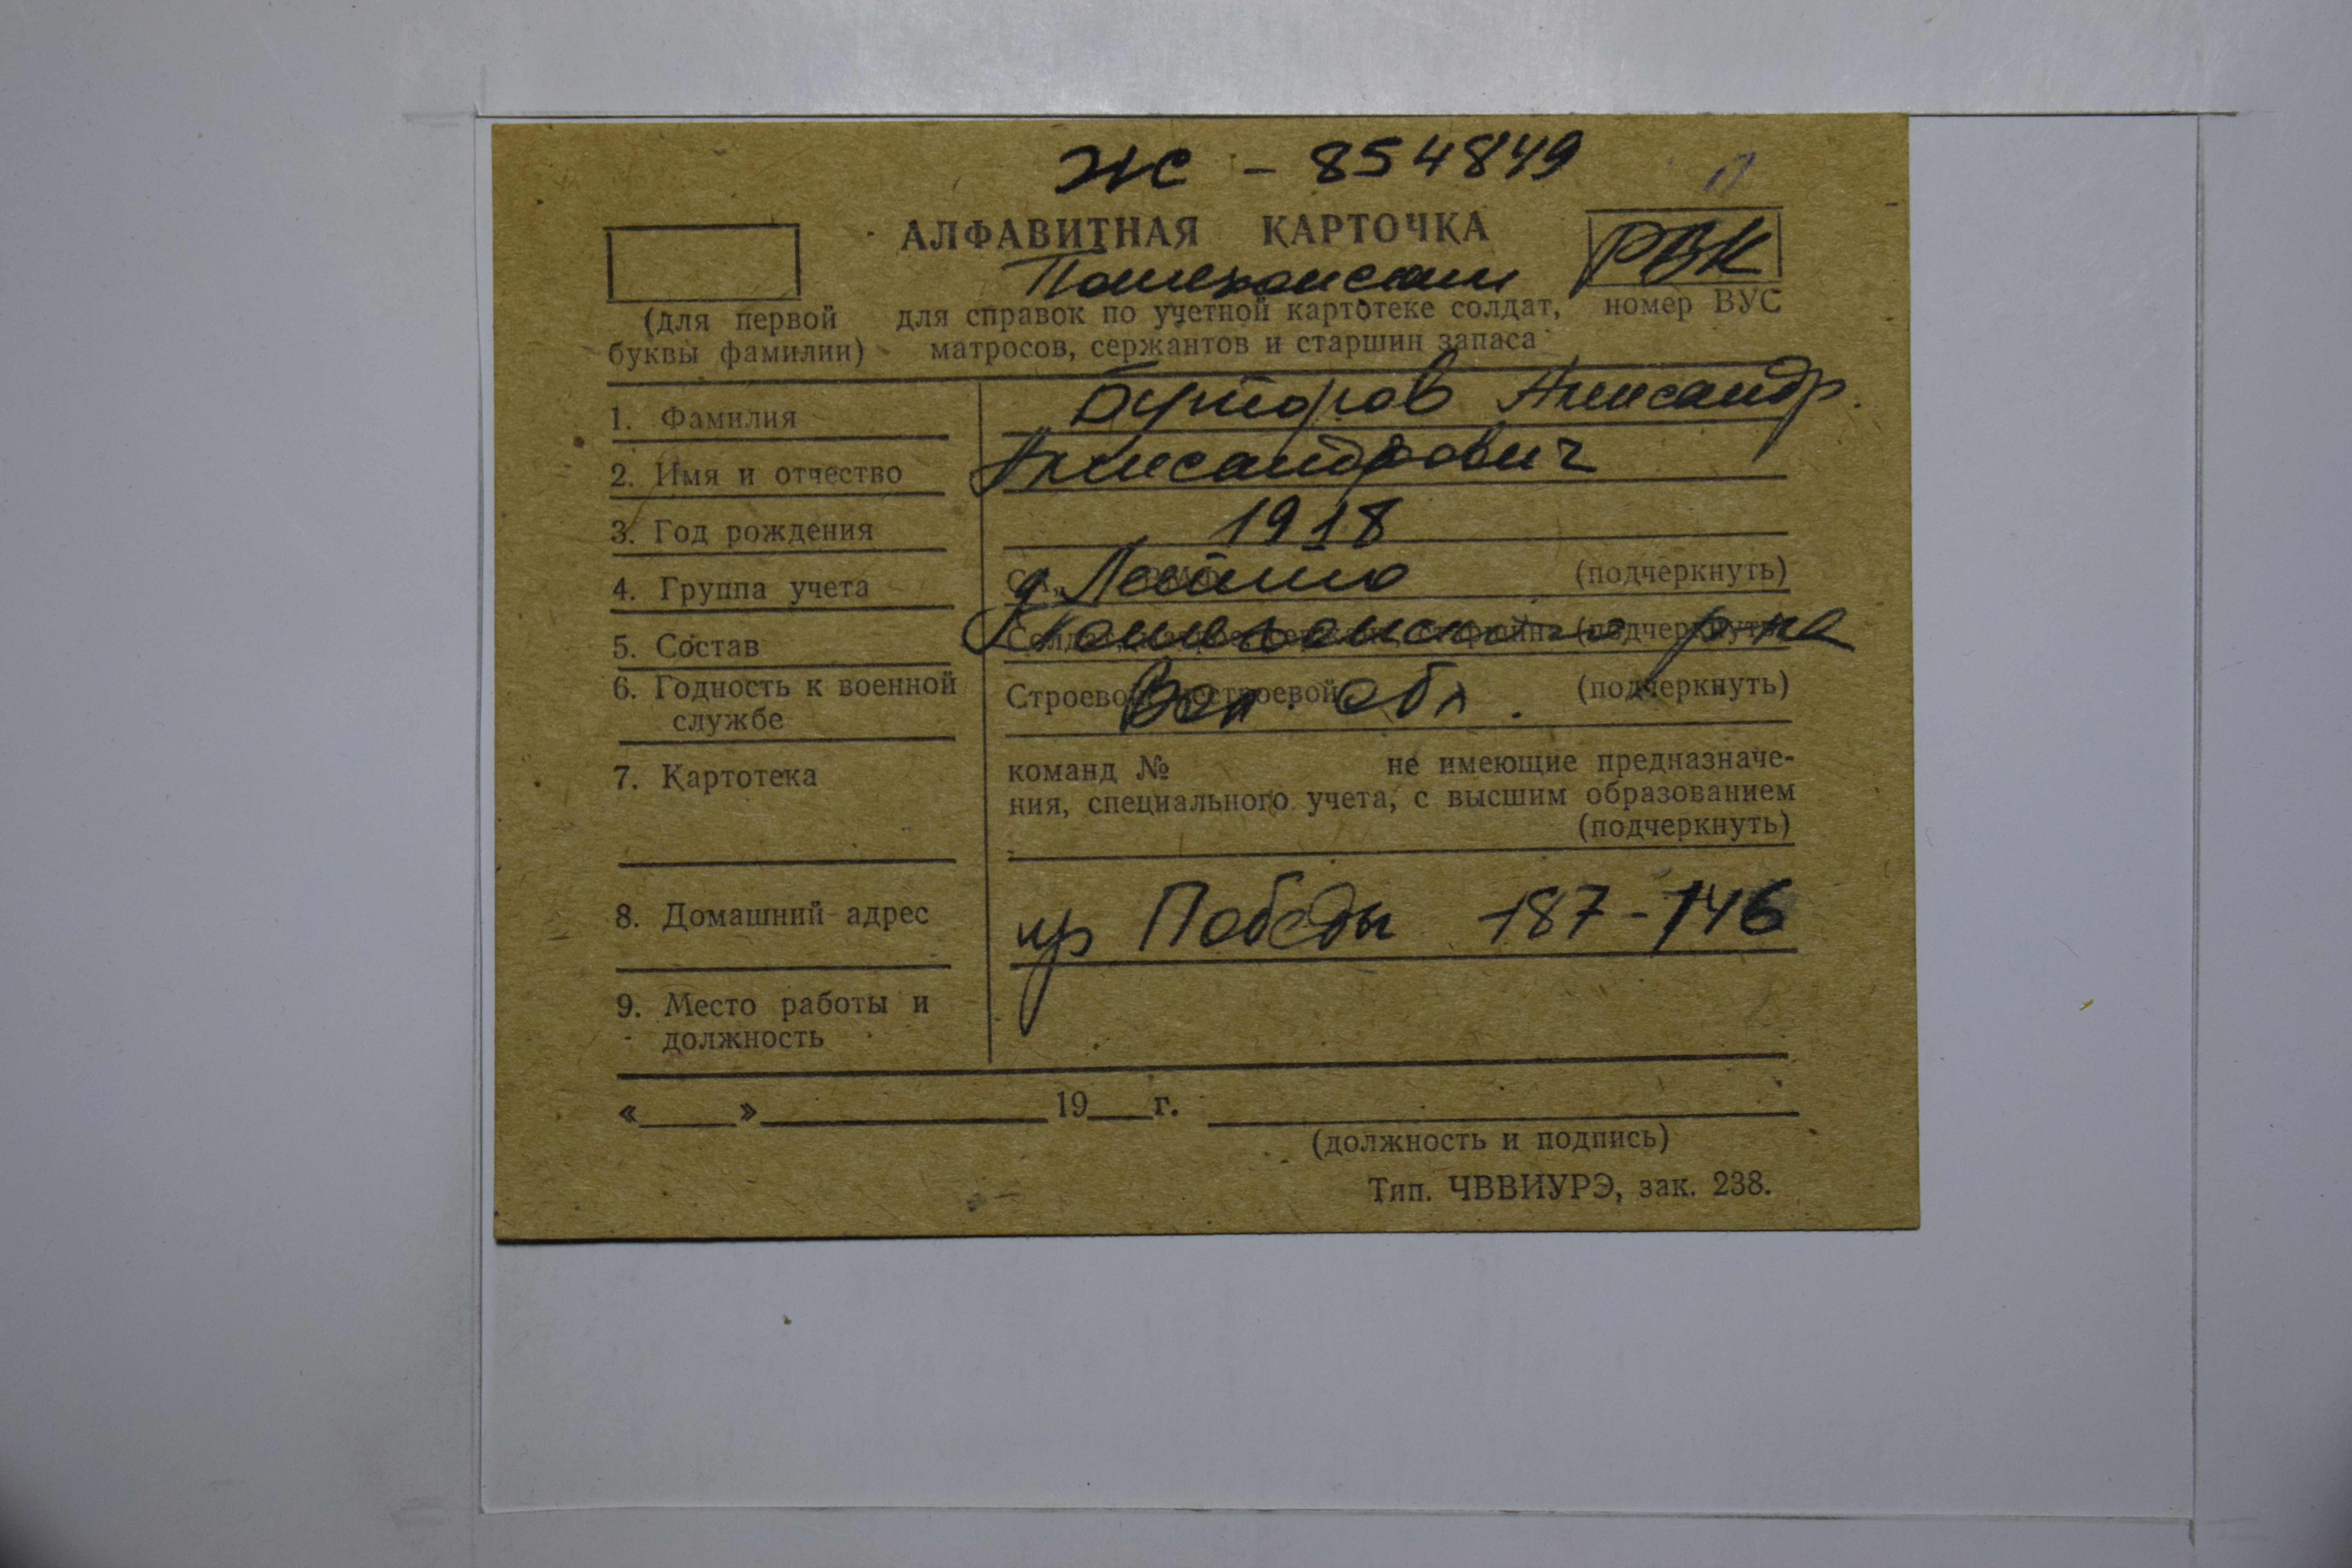 ЖС - 854849
АЛФАВИТНАЯ КАРТОЧКА
Пошехонским РВК
(для первой буквы фамилии)
для справок по учетной картотеке солдат,
матросов, сержантов и старшин запаса
номер ВУС
1. Фамилия Бутторов Александр
2. Имя и отчество Александрович
3. Год рождения 1918
4. Группа учета д (подчеркнуть)
5. Состав Пошехонского р-на (подчеркнуть)
6. Годность к военной службе Строевой, нестроевой Вол. обл. (подчеркнуть)
7. Картотека команд № не имеющие предназначе-
ния, специального учета, с высшим образованием
(подчеркнуть)
8. Домашний адрес пр Победы 187-146
9. Место работы и
должность
« » 19 г.
(должность и подпись)
Тип. ЧВВИУРЭ, зак. 238.